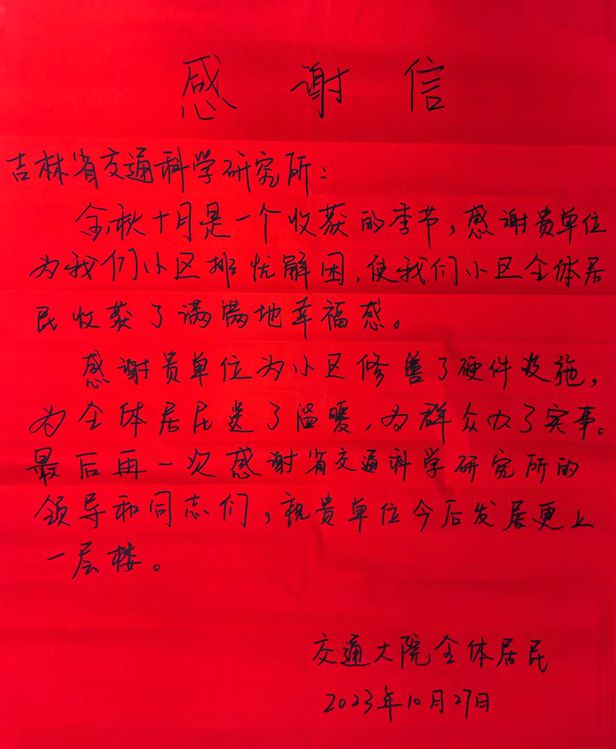 感谢信
吉林省交通科学研究所:
金秋十月是一个收获的季节,感谢贵单位
为我们小区排忧解困,使我们小区全体居
民收获了满满地幸福感。
感谢贵单位为小区修善了硬件设施,
为全体居民送了温暖,为群众办了实事。
最后再一次感谢省交通科学研究所的
领导和同志们,祝贵单位今后发展更上
一层楼。
交通大院全体居民
2023年10月27日